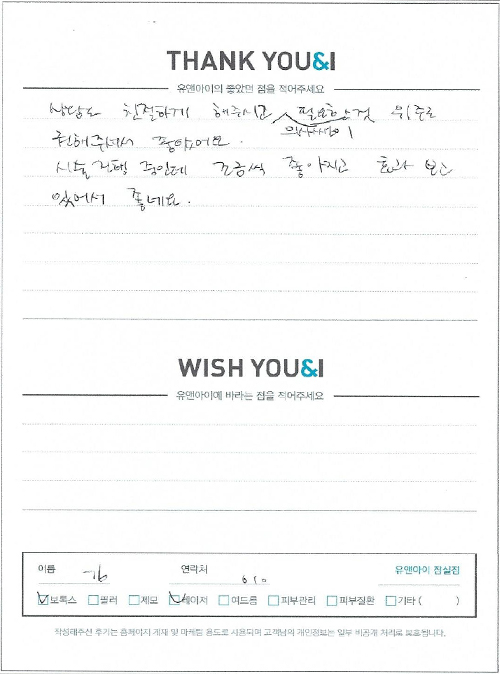 THANK YOU&I
유앤아이의 좋았던 점을 적어주세요
상담도 친절하게 해주시고 필요한 것 위주로
의사선생님이
권해주셔서 좋았어요.
시술 진행 중인데 조금씩 좋아지고 효과 보고
있어서 좋네요.
WISH YOU&I
유앤아이에 바라는 점을 적어주세요
이름 김 연락처 010 유앤아이 잠실점
보톡스 필러 제모 레이저 여드름 피부관리 피부질환 기타 ( )
작성해주신 후기는 홈페이지 게재 및 마케팅 용도로 사용되며 고객님의 개인정보는 일부 비공개 처리로 보호됩니다.